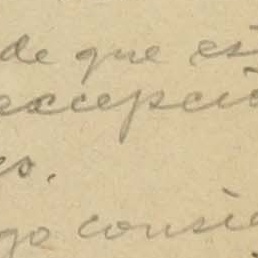 de que es
excepció
es.
go consi